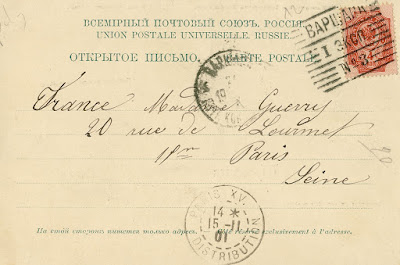 ВСЕМІРНЫЙ ПОЧТОВЫЙ СОЮЗЪ. РОССІЯ.
UNION POSTALE UNIVERSELLE. RUSSIE.
ОТКРЫТОЕ ПИСЬМО. CARTE POSTALE.
ВАРШАВА
France Madame Guerry
20 rue de Lourmel
Paris
Seine
PARIS XV.
14 *
15 -11
01
DISTRIBUTION
На этой сторонѣ пишется только адресъ. exclusivement à l'adresse.
20